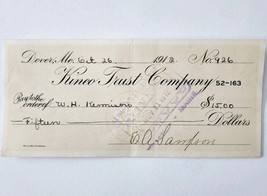 Dover, Me. Oct 26, 1912 No. 926
Kineo Trust Company 52-163
Pay to the order of W. H. Kennison $15.00
Fifteen Dollars
E A Sampson